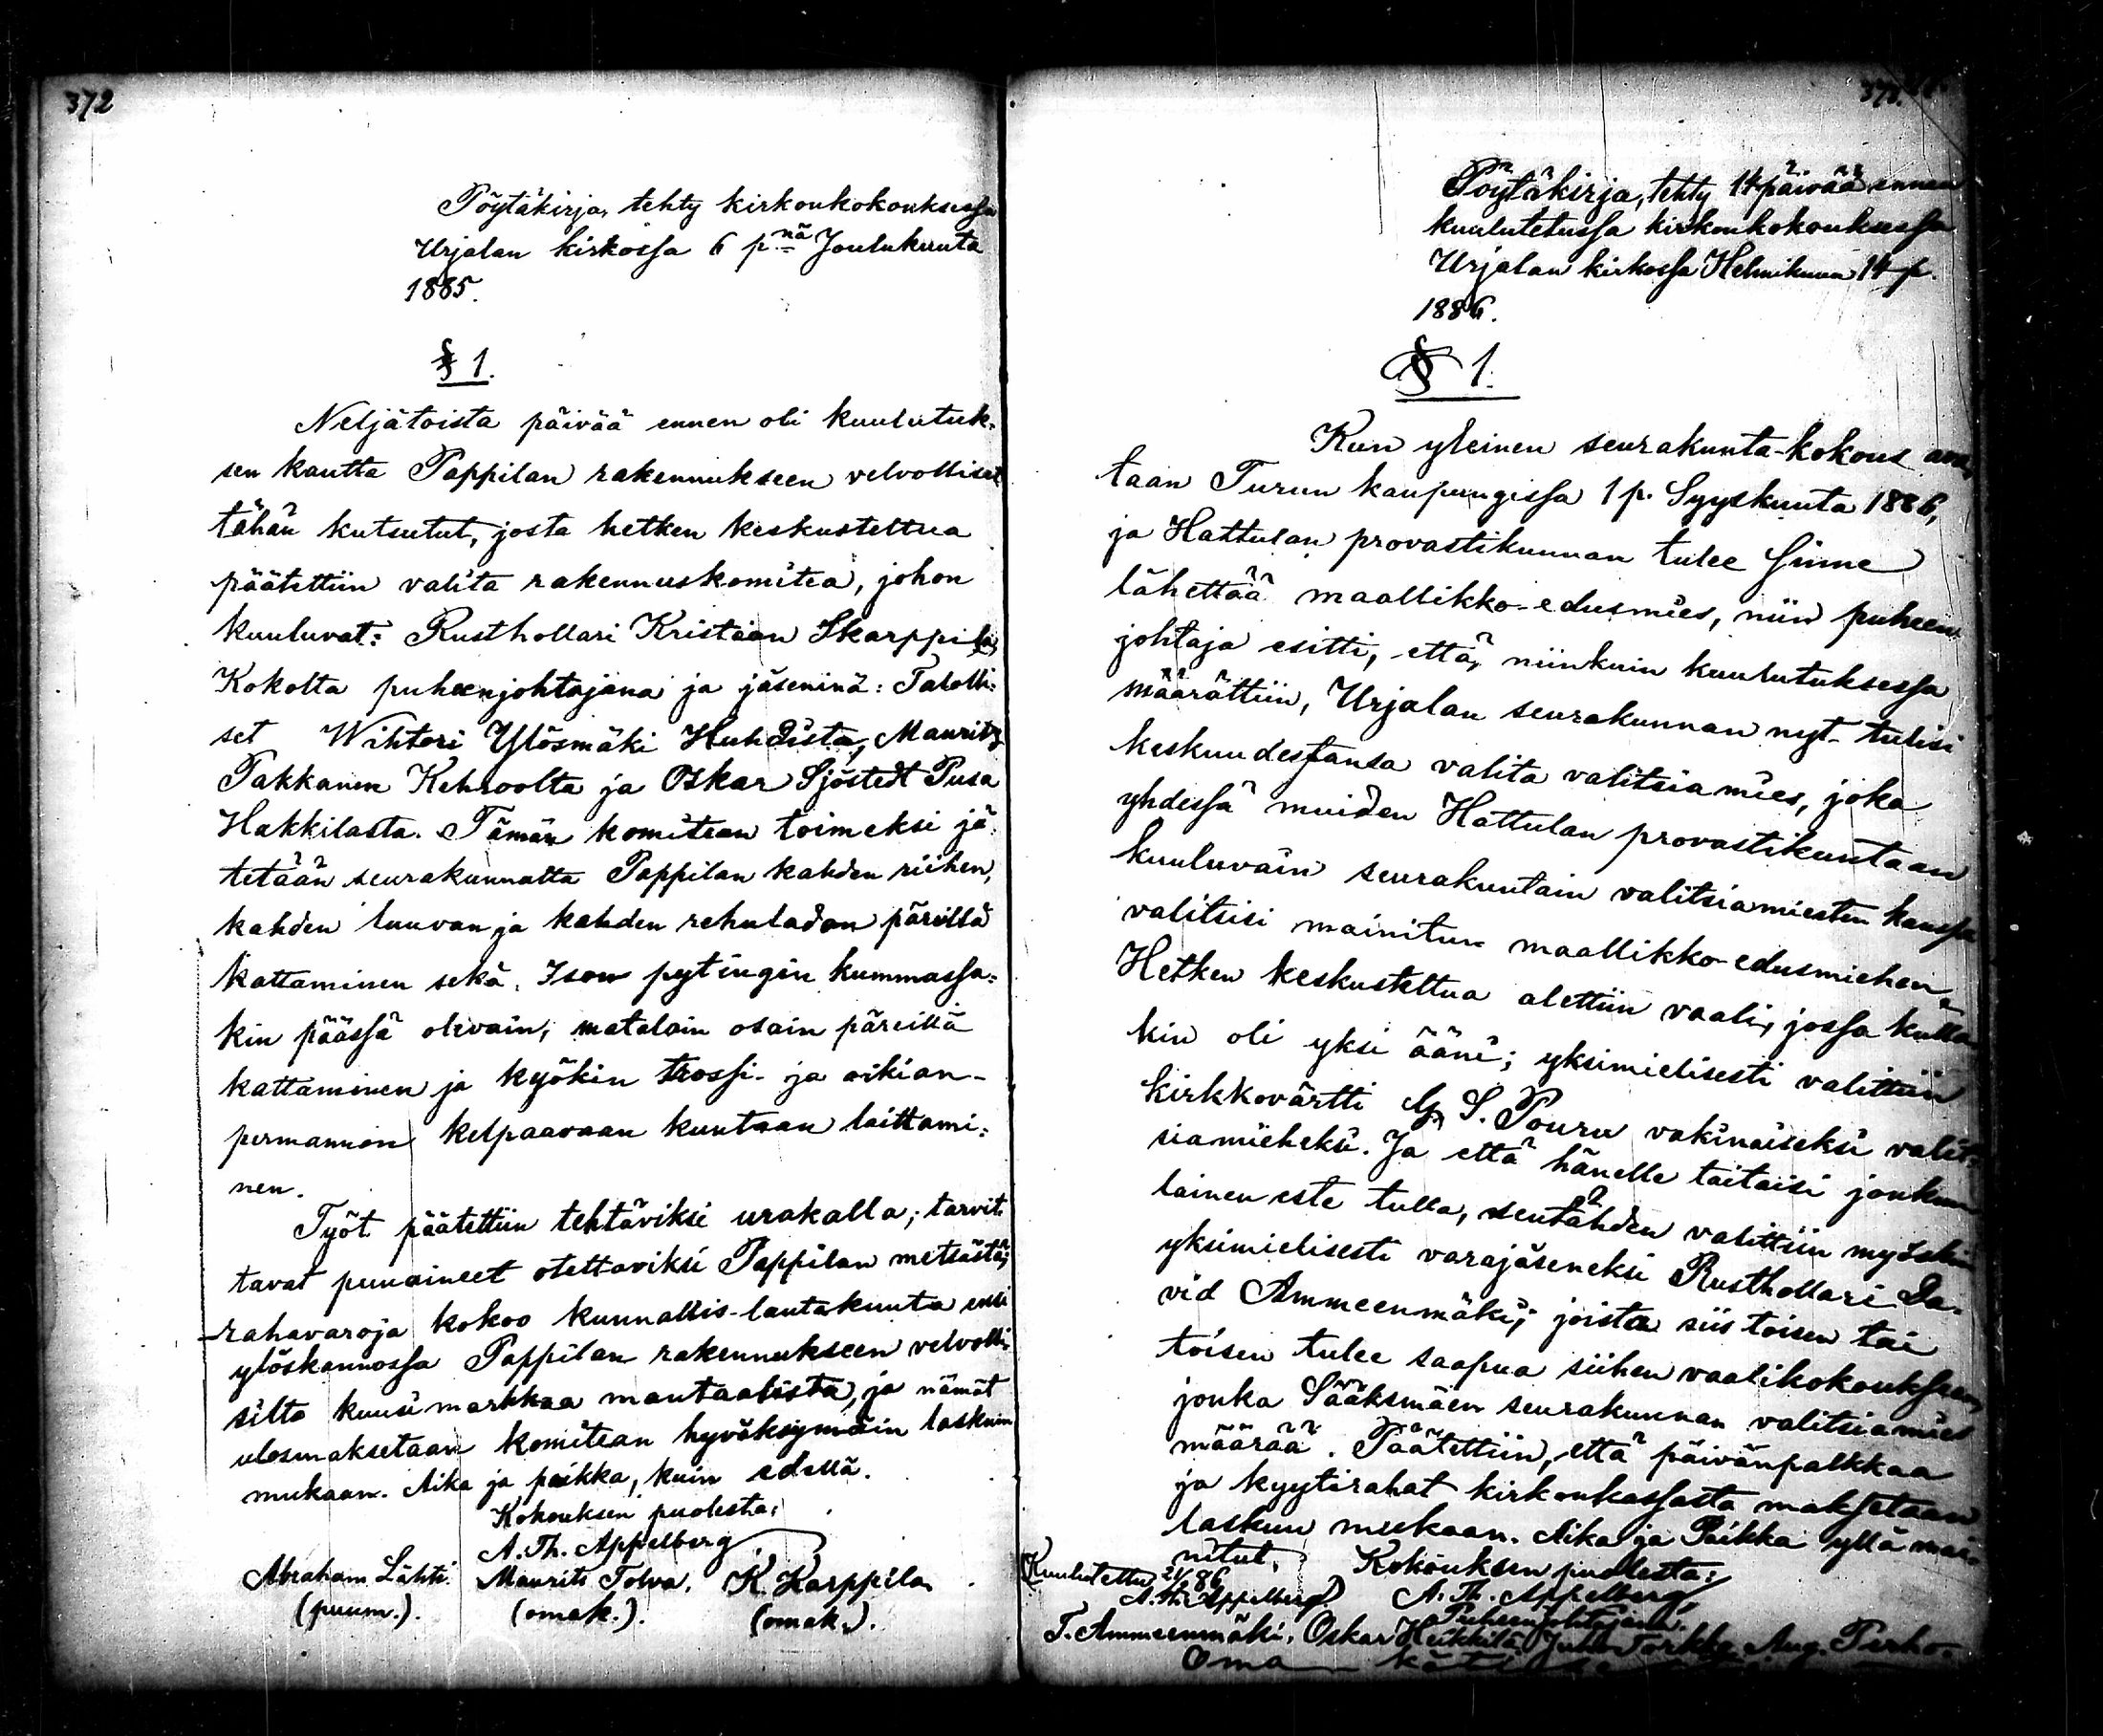 372
Pöytäkirja, tehty kirkonkokouksessa
Urjalan kirkossa 6 p:nä Joulukuuta
1885.
§ 1.
Neljätoista päivää ennen oli kuulutuk-
sen kautta Pappilan rakennukseen velvolliset
tähän kutsutut, josta hetken keskusteltua
päätettiin valita rakennuskomitea, johon
kuuluvat: Rusthollari Kristian Skarppila
Kokolta puheenjohtajana ja jäseninä: Talolli-
set Wihtori Ylösmäki Huhdista, Mauritz
Pakkanen Kehroolta ja Oskar Sjöstedt Pusa
Hakkilasta. Tämän komitean toimeksi jä-
tetään seurakunnalta Pappilan kahden riihen,
kahden luuvan ja kahden rehuladon päreillä
kattaminen sekä Ison pytingin kummassa-
kin päässä olevain, matalain osain päreillä
kattaminen ja kyökin trossi- ja arkian-
permannon kelpaavaan kuntaan laittami-
nen.
Työt päätettiin tehtäviksi urakalla; tarvit-
tavat puuaineet otettaviksi Pappilan metsästä;
rahavaroja kokoo kunnallis-lautakunta ensi
ylöskannossa Pappilan rakennukseen velvolli-
silta kuusi markkaa mantaalista, ja nämät
ulosmaksetaan komitean hyväksymäin laskuin
mukaan. Aika ja paikka, kuin edellä.
Kokouksen puolesta:
A. Th. Appelberg
Abraham Lähti. Maurits Tolva. K. Karppila
(puum.). (omak.). (omak.).
373.
Pöytäkirja, tehty 14 päivää ennen
kuulutetussa kirkonkokouksessa
Urjalan kirkossa Helmikuun 14 p.
1886.
§ 1.
Kun yleinen seurakunta-kokous ava-
taan Turun kaupungissa 1 p. Syyskuuta 1886,
ja Hattulan provastikunnan tulee sinne
lähettää maallikko-edusmies, niin puheen-
johtaja esitti, että, niinkuin kuulutuksessa
määrättiin, Urjalan seurakunnan nyt tulisi
keskuudestansa valita valitsiamies, joka
yhdessä muiden Hattulan provastikuntaan
kuuluvain seurakuntain valitsiamiesten kanssa
valitsisi mainitun maallikko-edusmiehen.
Hetken keskusteltua alettiin vaali, jossa kulla-
kin oli yksi ääni; yksimielisesti valittiin
kirkkovärtti G. S. Pouru vakinaiseksi valit-
siamieheksi. Ja että hänelle taitaisi jonkun
lainen este tulla, sentähden valittiin myöskin
yksimielisesti varajäseneksi Rusthollari Da-
vid Ammeenmäki; joista siis toisen tai
toisen tulee saapua siihen vaalikokouksseen,
jonka Sääksmäen seurakunnan valitsiamies
määrää. Päätettiin, että päivänpalkkaa
ja kyytirahat kirkonkassasta maksetaan
laskun mukaan. Aika ja Paikka yllä mai-
nitut. Kokouksen puolesta:
Kuulutettu 21/2 86 A. Th. Appelberg,
A. Th. Appelberg. Puheenjohtajana.
T. Ammeenmäki. Oskar Heikkilä. Juha Torkko. Aug. Perho.
Oma